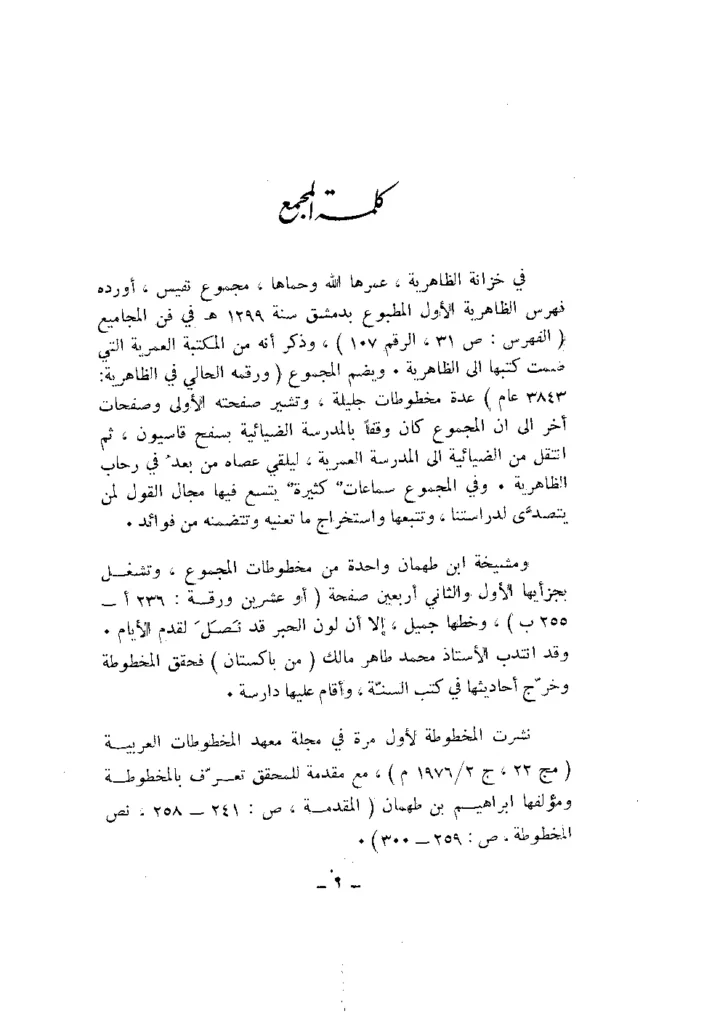 كلمة المجمع
في خزانة الظاهرية ، عمرها الله وحماها ، مجموع نفيس ، أورده
فهرس الظاهرية الأول المطبوع بدمشق سنة ١٢٩٩ هـ في فن المجاميع
( الفهرس : ص ٣١ ، الرقم ١٠٧ ) ، وذكر أنه من المكتبة العمرية التي
ضمت كتبها الى الظاهرية . ويضم المجموع ( ورقمه الحالي في الظاهرية:
٣٨٤٣ عام ) عدة مخطوطات جليلة ، وتشير صفحته الأولى وصفحات
أخر الى ان المجموع كان وقفاً بالمدرسة الضيائية بسفح قاسيون ، ثم
انتقل من الضيائية الى المدرسة العمرية ، ليلقي عصاه من بعدُ في رحاب
الظاهرية . وفي المجموع سماعاتٌ كثيرةٌ يتسع فيها مجال القول لمن
يتصدَّى لدراستنا ، وتتبعها واستخراج ما تعنيه وتتضمنه من فوائد .
ومشيخة ابن طهمان واحدة من مخطوطات المجموع ، وتشغل
بجزأيها الأول والثاني أربعين صفحة ( أو عشرين ورقة : ٢٣٦ أ ــ
٢٥٥ ب ) ، وخطها جميل ، إلا أن لون الحبر قد نَصَلَ لقدم الأيام .
وقد انتدب الأستاذ محمد طاهر مالك ( من باكستان ) فحقق المخطوطة
وخرّج أحاديثها في كتب السنّة ، وأقام عليها دارسة .
نشرت المخطوطة لأول مرة في مجلة معهد المخطوطات العربية
( مج ٢٢ ، ج ١٩٧٦/٢ م ) ، مع مقدمة للمحقق تعرّف بالمخطوطة
ومؤلفها ابراهيم بن طهمان ( المقدمة ، ص : ٢٤١ ــ ٢٥٨ ، نص
المخطوطة . ص : ٢٥٩ ــ ٣٠٠ ) .
ــ ٦ ــ